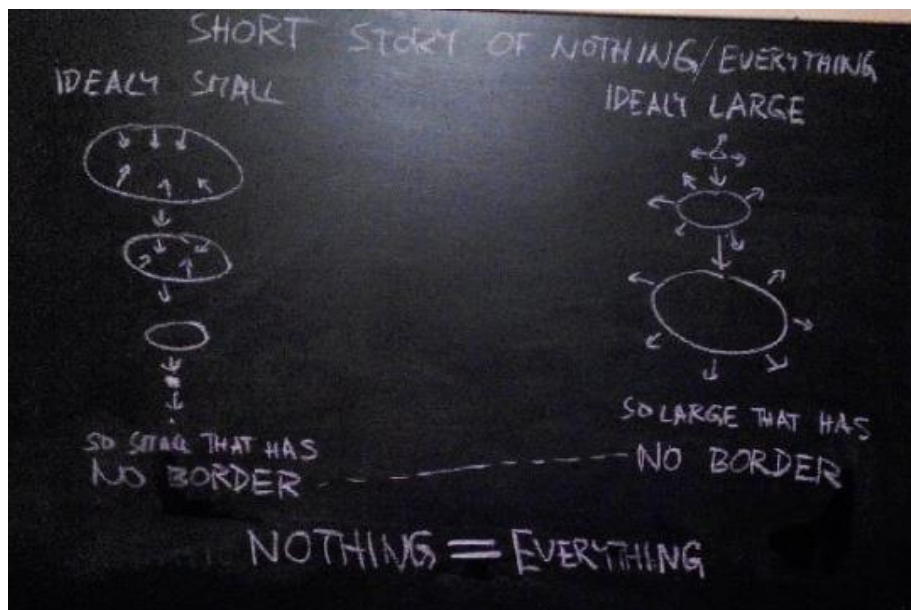 SHORT STORY OF NOTHING/EVERYTHING
IDEALY SMALL
SO SMALL THAT HAS
NO BORDER
IDEALY LARGE
SO LARGE THAT HAS
NO BORDER
NOTHING = EVERYTHING